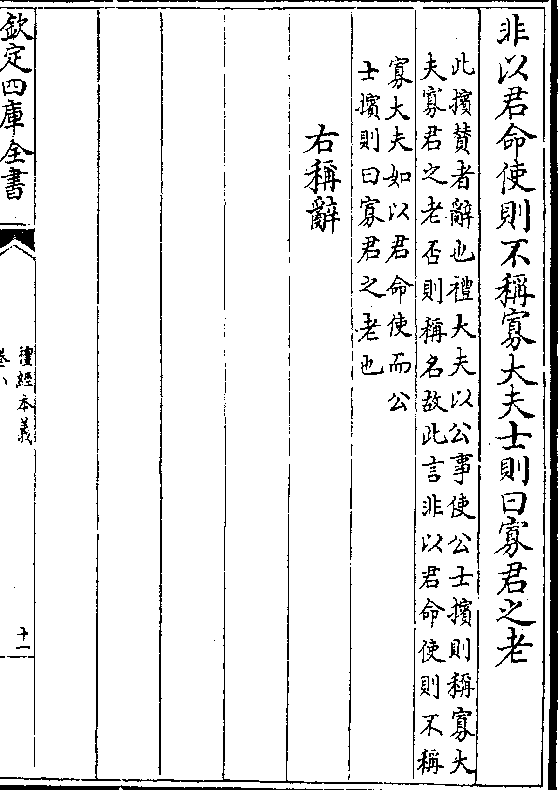 非以君命使則不稱寡大夫士則曰寡君之老
此擯贊者辭也禮大夫以公事使公士擯則稱寡大
夫寡君之老否則稱名故此言非以君命使則不稱
寡大夫如以君命使而公
士擯則曰寡君之老也
右稱辭
欽定四庫全書
禮經本義
卷八
十一